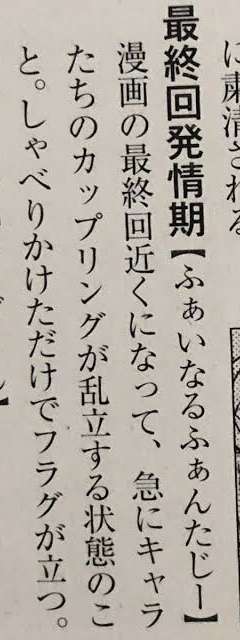 に粛清される
最終回発情期【ふぁいなるふぁんたじー】
漫画の最終回近くになって、急にキャラ
たちのカップリングが乱立する状態のこ
と。しゃべりかけただけでフラグが立つ。